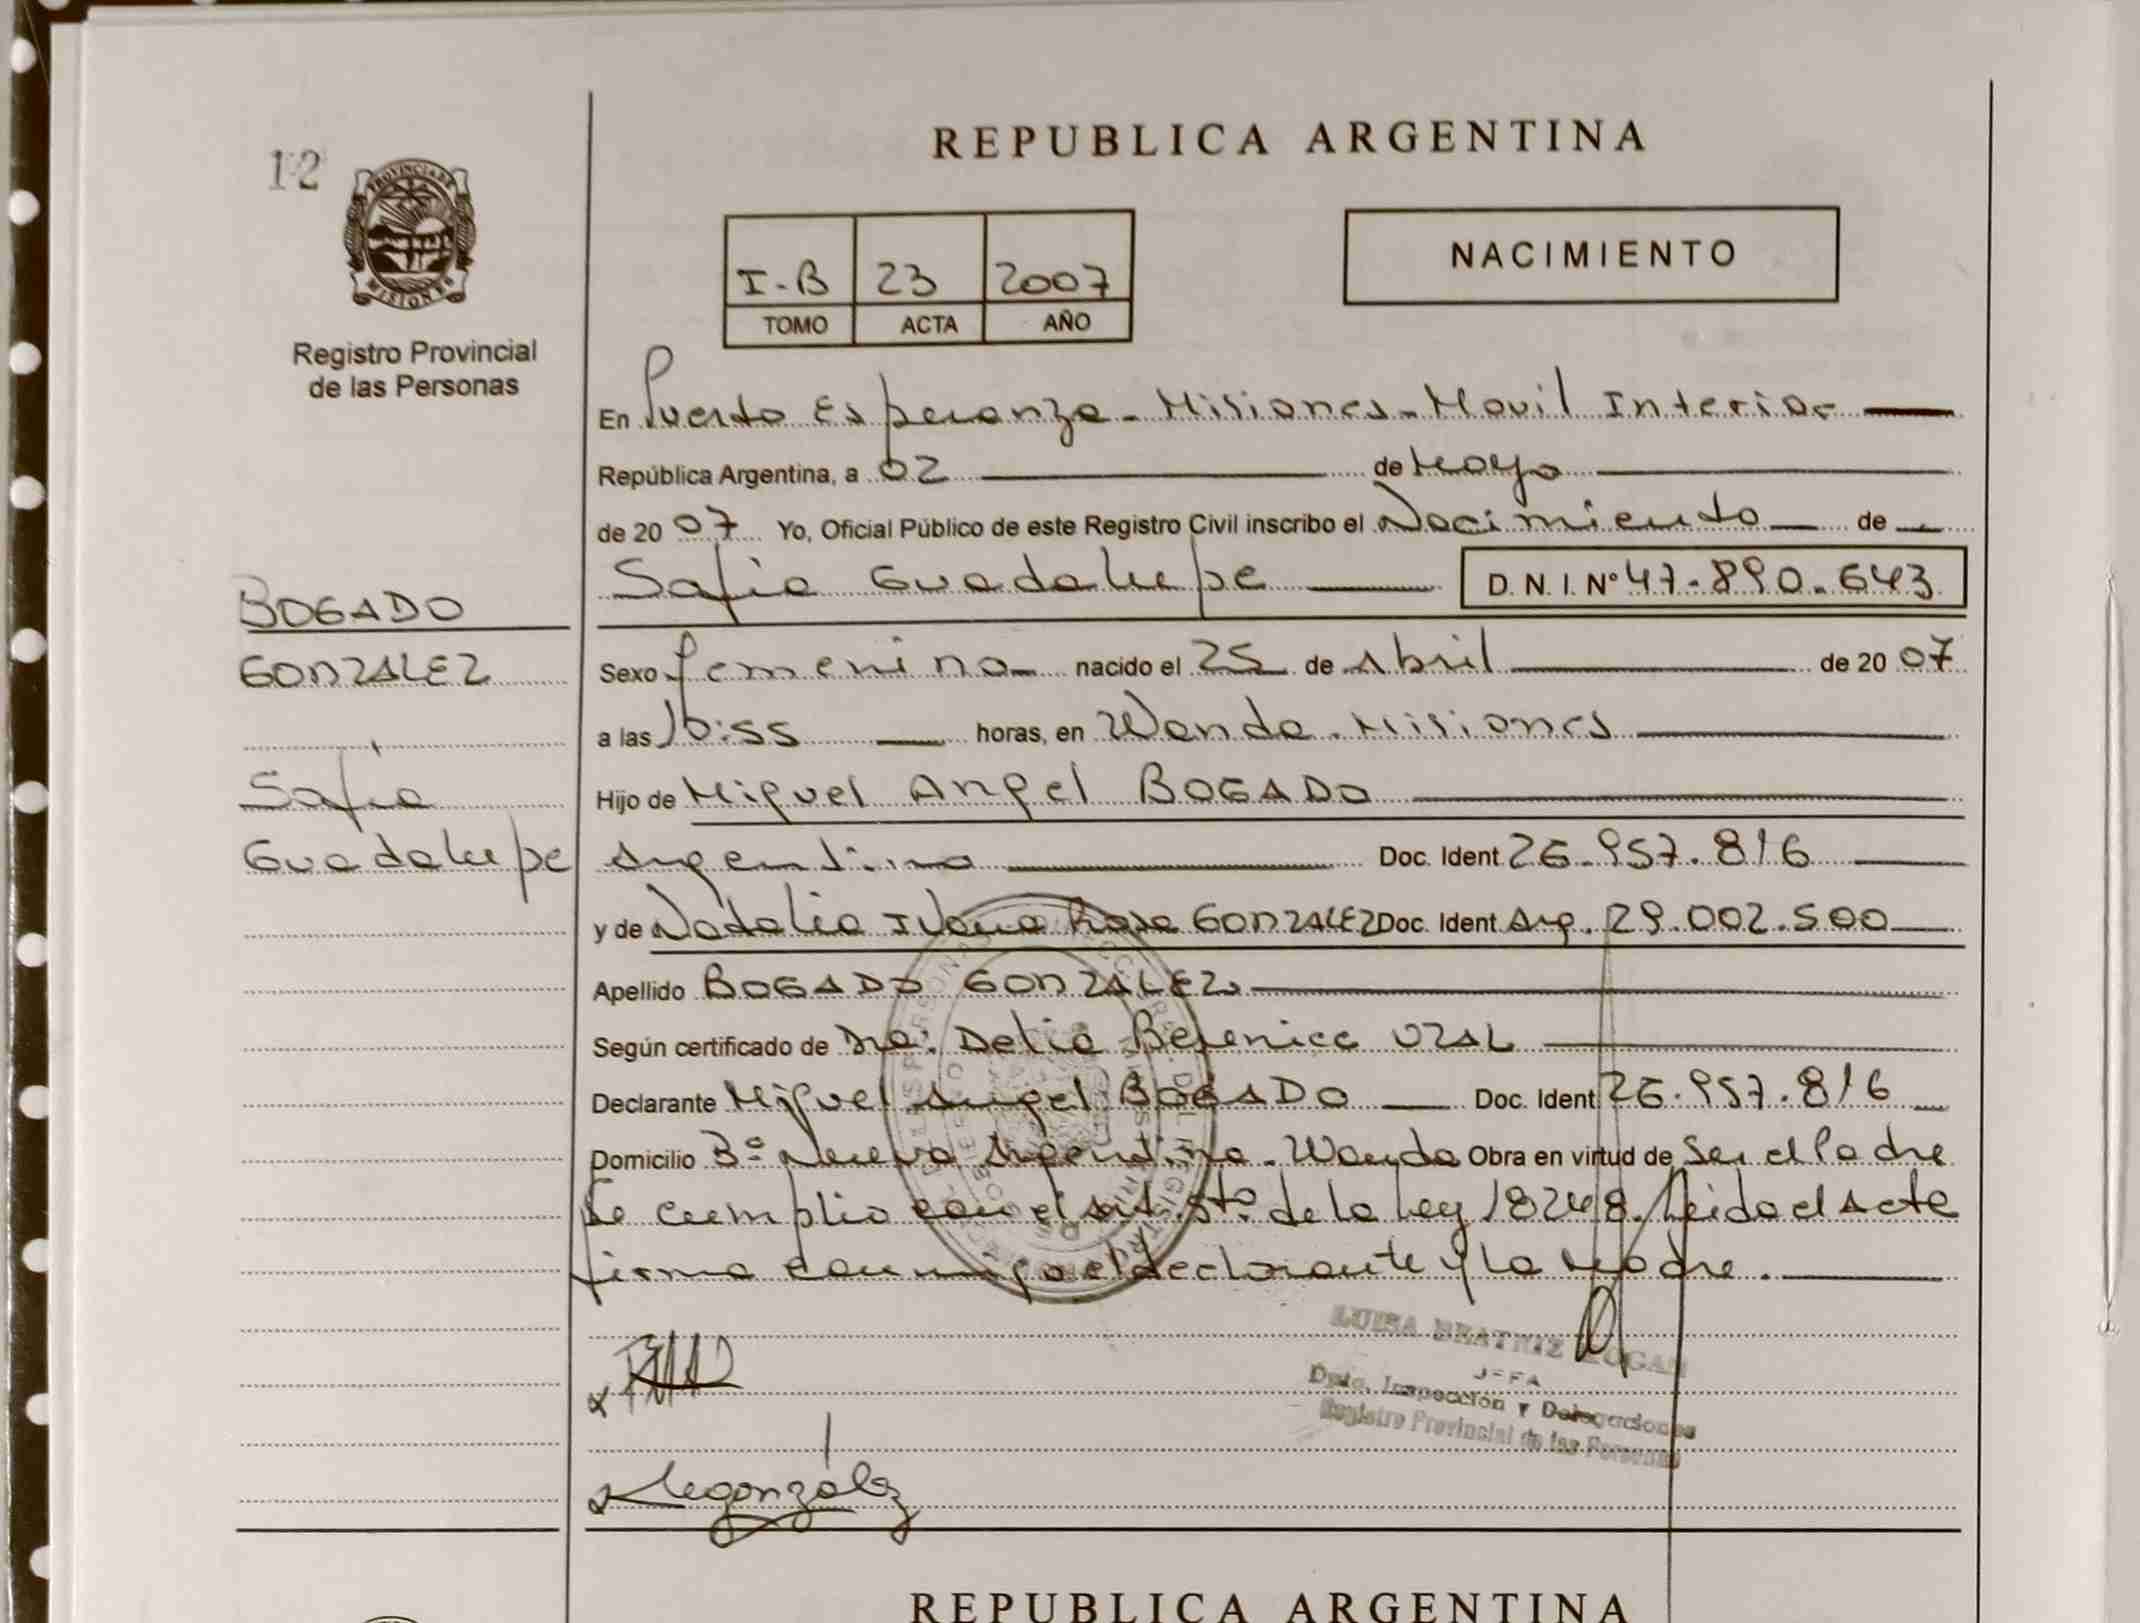 12
PROVINCIA DE
MISIONES
Registro Provincial
de las Personas
REPUBLICA ARGENTINA
I-B 23 2007
TOMO ACTA AÑO
NACIMIENTO
En Puerto Esperanza - Misiones - Movil Interior
República Argentina, a 02 de Mayo
de 2007 Yo, Oficial Público de este Registro Civil inscribo el Nacimiento de
Sofia Guadalupe D. N. I. Nº 47.890.643
BOGADO
GONZALEZ
Sofia
Guadalupe
Sexo femenino nacido el 25 de Abril de 2007
a las 16:55 horas, en Wanda - Misiones
Hijo de Miguel Angel BOGADO
Argentino Doc. Ident 26.957.816
y de Natalia Ivana Rosa GONZALEZ Doc. Ident Arg. 29.002.500
Apellido BOGADO GONZALEZ
Según certificado de Dra: Delia Berenice UZAL
Declarante Miguel Angel BOGADO Doc. Ident 26.957.816
Domicilio Bº Nueva Argentina - Wanda Obra en virtud de ser el Padre
Se cumplio con el art. 5to de la Ley 18248. Leida el Acta
firma conmigo el declarante y la Madre.
LUISA BEATRIZ
JEFA
Dpto. Inspección y Delegaciones
Registro Provincial de las Personas
González
REPUBLICA ARGENTINA